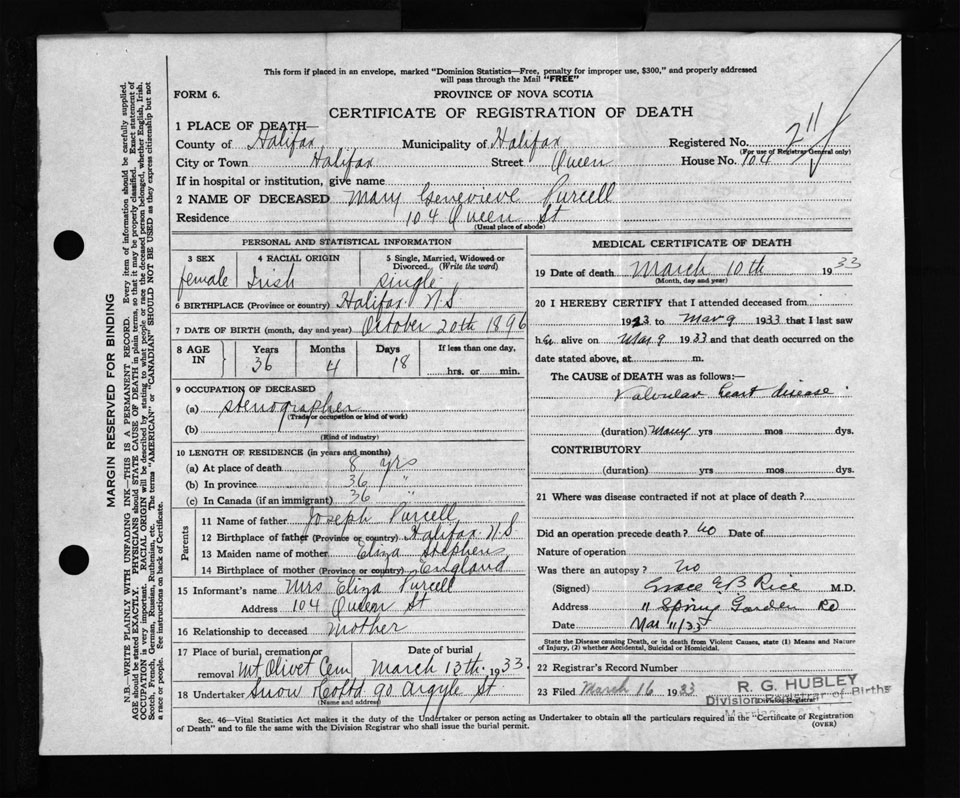 This form if placed in an envelope, marked "Dominion Statistics—Free, penalty for improper use, $300," and properly addressed
will pass through the Mail "FREE"
FORM 6.
PROVINCE OF NOVA SCOTIA
CERTIFICATE OF REGISTRATION OF DEATH
1 PLACE OF DEATH—
County of Halifax Municipality of Halifax Registered No.
(For use of Registrar General only)
City or Town Halifax Street Queen House No. 104
If in hospital or institution, give name
2 NAME OF DECEASED Mary Genevieve Purcell
Residence 104 Queen St
(Usual place of abode)
PERSONAL AND STATISTICAL INFORMATION
3 SEX 4 RACIAL ORIGIN 5 Single, Married, Widowed or
Divorced. (Write the word)
female Irish single
6 BIRTHPLACE (Province or country) Halifax N.S
7 DATE OF BIRTH (month, day and year) October 20th 1896
8 AGE IN Years Months Days If less than one day,
36 4 18 hrs. or min.
9 OCCUPATION OF DECEASED
(a) Stenographer
(Trade or occupation or kind of work)
(b)
(Kind of industry)
10 LENGTH OF RESIDENCE (in years and months)
(a) At place of death 8 yrs
(b) In province 36 "
(c) In Canada (if an immigrant) 36 "
Parents
11 Name of father Joseph Purcell
12 Birthplace of father (Province or country) Halifax N.S
13 Maiden name of mother Eliza Stephens
14 Birthplace of mother (Province or country) England
15 Informant's name Mrs Eliza Purcell
Address 104 Queen St
16 Relationship to deceased Mother
17 Place of burial, cremation or Date of burial
removal Mt Olivet Cem March 13th 1933.
18 Undertaker Snow & Co Ltd 90 Argyle St
(Name and address)
MEDICAL CERTIFICATE OF DEATH
19 Date of death March 10th 1933
(Month, day and year)
20 I HEREBY CERTIFY that I attended deceased from
1923 to Mar 9 1933 that I last saw
her alive on Mar 9 1933 and that death occurred on the
date stated above, at m.
The CAUSE of DEATH was as follows:—
Valvular heart disease
(duration) Many yrs mos dys.
CONTRIBUTORY
(duration) yrs mos dys.
21 Where was disease contracted if not at place of death?
Did an operation precede death? No Date of
Nature of operation
Was there an autopsy? No
(Signed) Grace E B Rice M.D.
Address 11 Spring Garden Rd
Date Mar 11/33
State the Disease causing Death, or in death from Violent Causes, state (1) Means and Nature
of Injury, (2) whether Accidental, Suicidal or Homicidal.
22 Registrar's Record Number
23 Filed March 16 1933
R. G. HUBLEY
Division Registrar of Births
Division Registrar
Sec. 46—Vital Statistics Act makes it the duty of the Undertaker or person acting as Undertaker to obtain all the particulars required in the "Certificate of Registration
of Death" and to file the same with the Division Registrar who shall issue the burial permit.
(OVER)
MARGIN RESERVED FOR BINDING
N.B.—WRITE PLAINLY WITH UNFADING INK—THIS IS A PERMANENT RECORD. Every item of information should be carefully supplied.
AGE should be stated EXACTLY. PHYSICIANS should STATE CAUSE OF DEATH in plain terms, so that it may be properly classified. Exact statement of
OCCUPATION is very important. RACIAL ORIGIN will be described by stating to what people or race the deceased person belonged, whether English, Irish,
Scotch, French, German, Russian, Ruthenian, etc. The terms "AMERICAN" or "CANADIAN" SHOULD NOT BE USED as they express citizenship but not
a race or people. See instructions on back of Certificate.